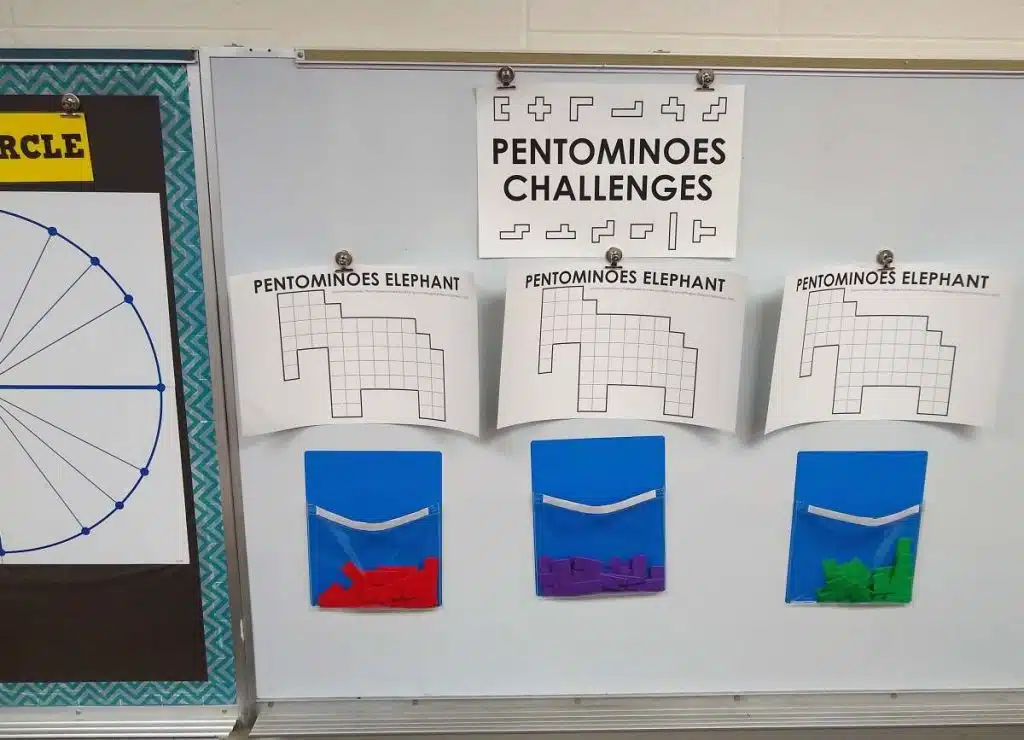 RCLE
PENTOMINOES
CHALLENGES
PENTOMINOES ELEPHANT
PENTOMINOES ELEPHANT
PENTOMINOES ELEPHANT